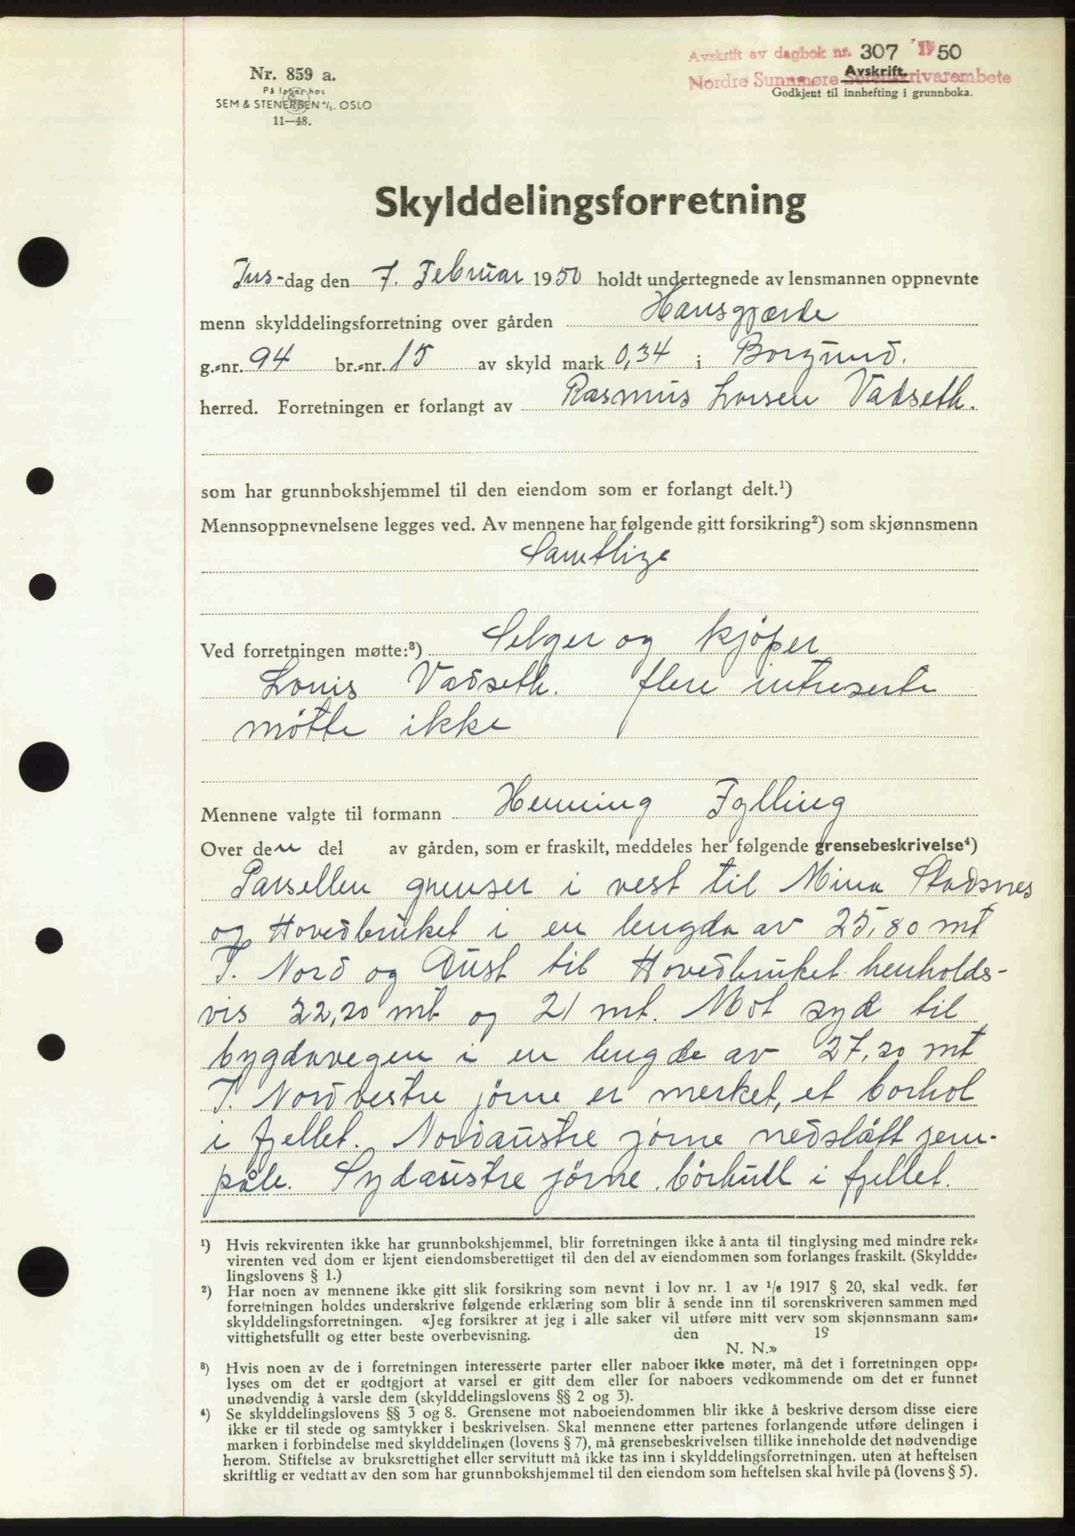 Avskrift av dagbok nr. 307 1950
Nordre Sunnmøre Sorenskrivarembete
Avskrift.
Godkjent til innhefting i grunnboka.
Nr. 859 a.
På lager hos
SEM & STENERSEN A/S. OSLO
11—48.
Skylddelingsforretning
Tirs-dag den 7. Februar 1950 holdt undertegnede av lensmannen oppnevnte
menn skylddelingsforretning over gården Hansgjærde
g.-nr. 94 br.-nr. 15 av skyld mark 0,34 i Borgund.
herred. Forretningen er forlangt av Rasmus Larsen Vadseth.
som har grunnbokshjemmel til den eiendom som er forlangt delt.¹)
Mennsoppnevnelsene legges ved. Av mennene har følgende gitt forsikring²) som skjønnsmenn
Samtlige
Ved forretningen møtte:³) Selger og kjøper
Louis Vadseth. flere intreserte
møtte ikke
Mennene valgte til formann Henning Fylling
Over den del av gården, som er fraskilt, meddeles her følgende grensebeskrivelse⁴)
Parsellen grenser i vest til Mina Stadsnes
og Hovedbruket i en lengda av 25,80 mt
I. Nord og Aust til Hovedbruket henholds-
vis 22,20 mt og 21 mt. Mot syd til
bygdavegen i en lengde av 27,20 mt
I. Nordvestre jørne er merket, et borhol
i fjellet. Nordaustre jørne nedslått jern-
påle. Sydaustre jørne børhull i fjellet.
¹) Hvis rekvirenten ikke har grunnbokshjemmel, blir forretningen ikke å anta til tinglysing med mindre rek-
virenten ved dom er kjent eiendomsberettiget til den del av eiendommen som forlanges fraskilt. (Skyldde-
lingslovens § 1.)
²) Har noen av mennene ikke gitt slik forsikring som nevnt i lov nr. 1 av 1/6 1917 § 20, skal vedk. før
forretningen holdes underskrive følgende erklæring som blir å sende inn til sorenskriveren sammen med
skylddelingsforretningen. «Jeg forsikrer at jeg i alle saker vil utføre mitt verv som skjønnsmann sam-
vittighetsfullt og etter beste overbevisning. den 19
N. N.»
³) Hvis noen av de i forretningen interesserte parter eller naboer ikke møter, må det i forretningen opp-
lyses om det er godtgjort at varsel er gitt dem eller for naboers vedkommende om det er funnet
unødvendig å varsle dem (skylddelingslovens §§ 2 og 3).
⁴) Se skylddelingslovens §§ 3 og 8. Grensene mot naboeiendommen blir ikke å beskrive dersom disse eiere
ikke er til stede og samtykker i beskrivelsen. Skal mennene etter partenes forlangende utføre delingen i
marken i forbindelse med skylddelingen (lovens § 7), må grensebeskrivelsen tillike inneholde det nødvendige
herom. Stiftelse av bruksrettighet eller servitutt må ikke tas inn i skylddelingsforretningen, uten at heftelsen
skriftlig er vedtatt av den som har grunnbokshjemmel til den eiendom som heftelsen skal hvile på (lovens § 5).